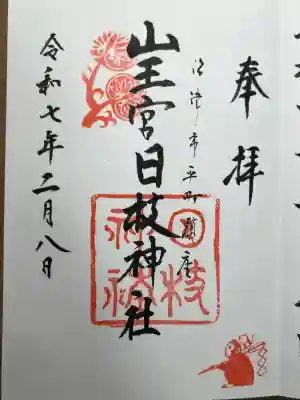 奉拝
沼津市平町鎮座
山王宮日枝神社
令和七年二月八日
日枝神社